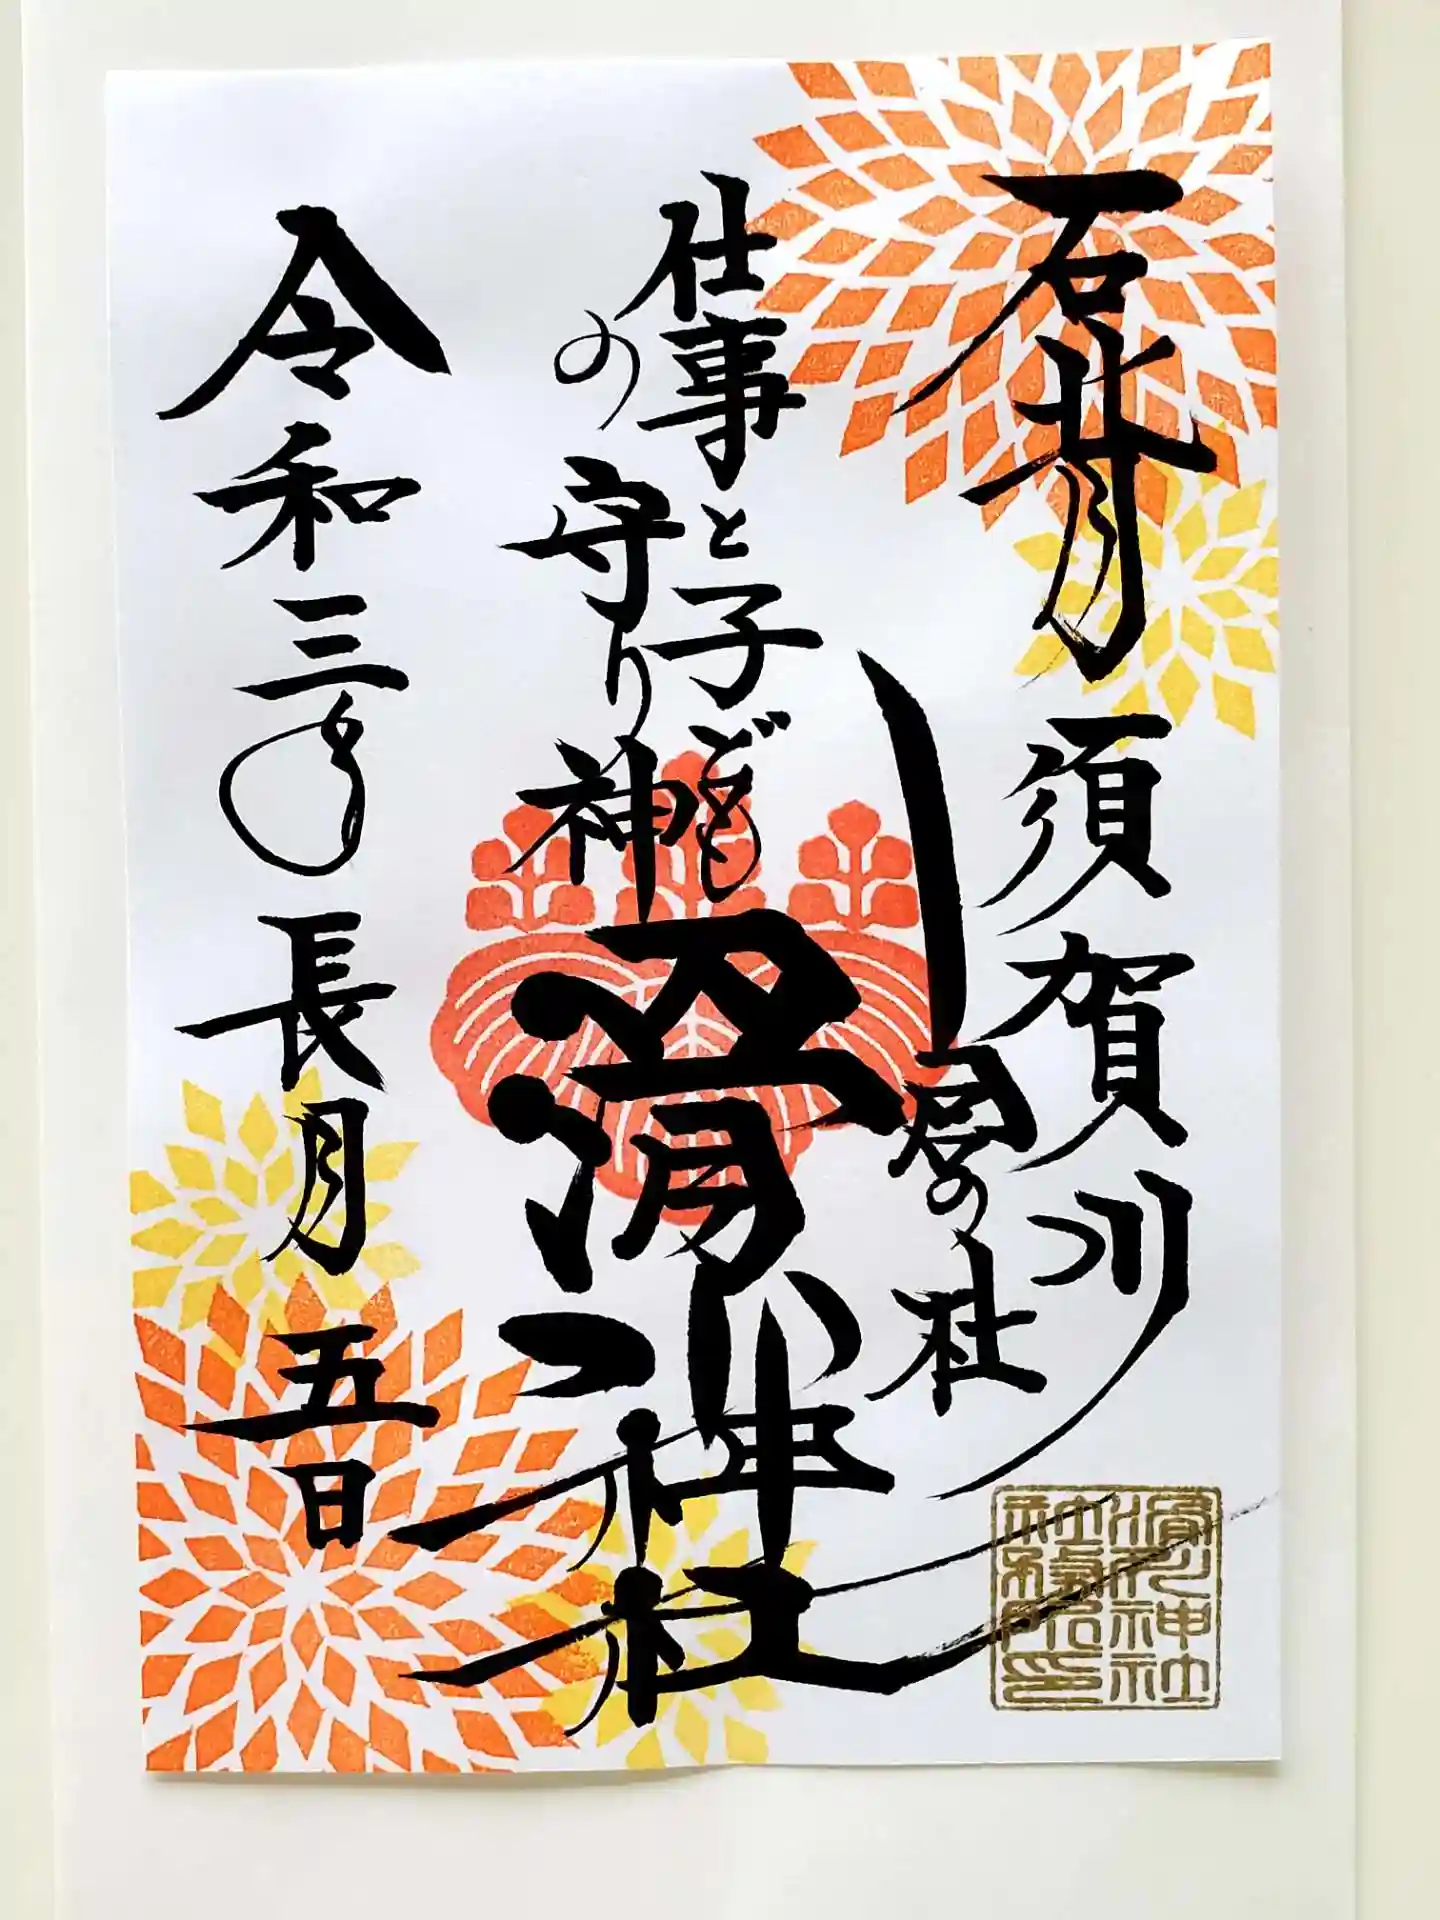 石背 須賀川
の杜
仕事と子ども
の守り神
滑川神社
令和三年長月五日
滑川神社
社務所印